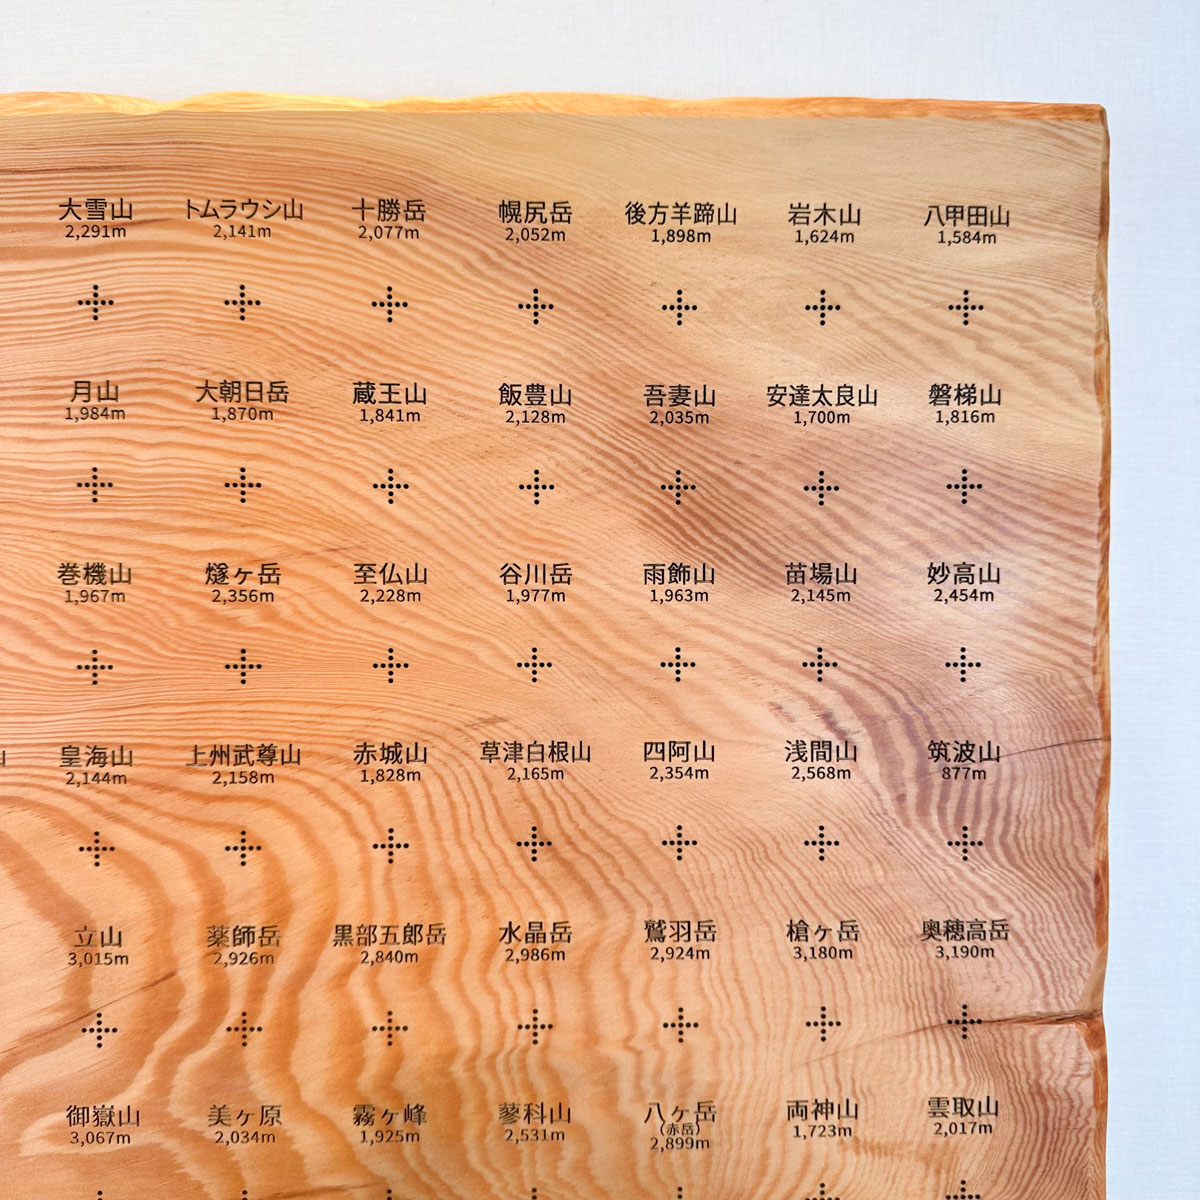 大雪山 トムラウシ山 十勝岳 幌尻岳 後方羊蹄山 岩木山 八甲田山
2,291m 2,141m 2,077m 2,052m 1,898m 1,624m 1,584m
月山 大朝日岳 蔵王山 飯豊山 吾妻山 安達太良山 磐梯山
1,984m 1,870m 1,841m 2,128m 2,035m 1,700m 1,816m
巻機山 燧ヶ岳 至仏山 谷川岳 雨飾山 苗場山 妙高山
1,967m 2,356m 2,228m 1,977m 1,963m 2,145m 2,454m
山 皇海山 上州武尊山 赤城山 草津白根山 四阿山 浅間山 筑波山
2,144m 2,158m 1,828m 2,165m 2,354m 2,568m 877m
立山 薬師岳 黒部五郎岳 水晶岳 鷲羽岳 槍ヶ岳 奥穂高岳
3,015m 2,926m 2,840m 2,986m 2,924m 3,180m 3,190m
御嶽山 美ヶ原 霧ヶ峰 蓼科山 八ヶ岳 両神山 雲取山
(赤岳)
3,067m 2,034m 1,925m 2,531m 2,899m 1,723m 2,017m